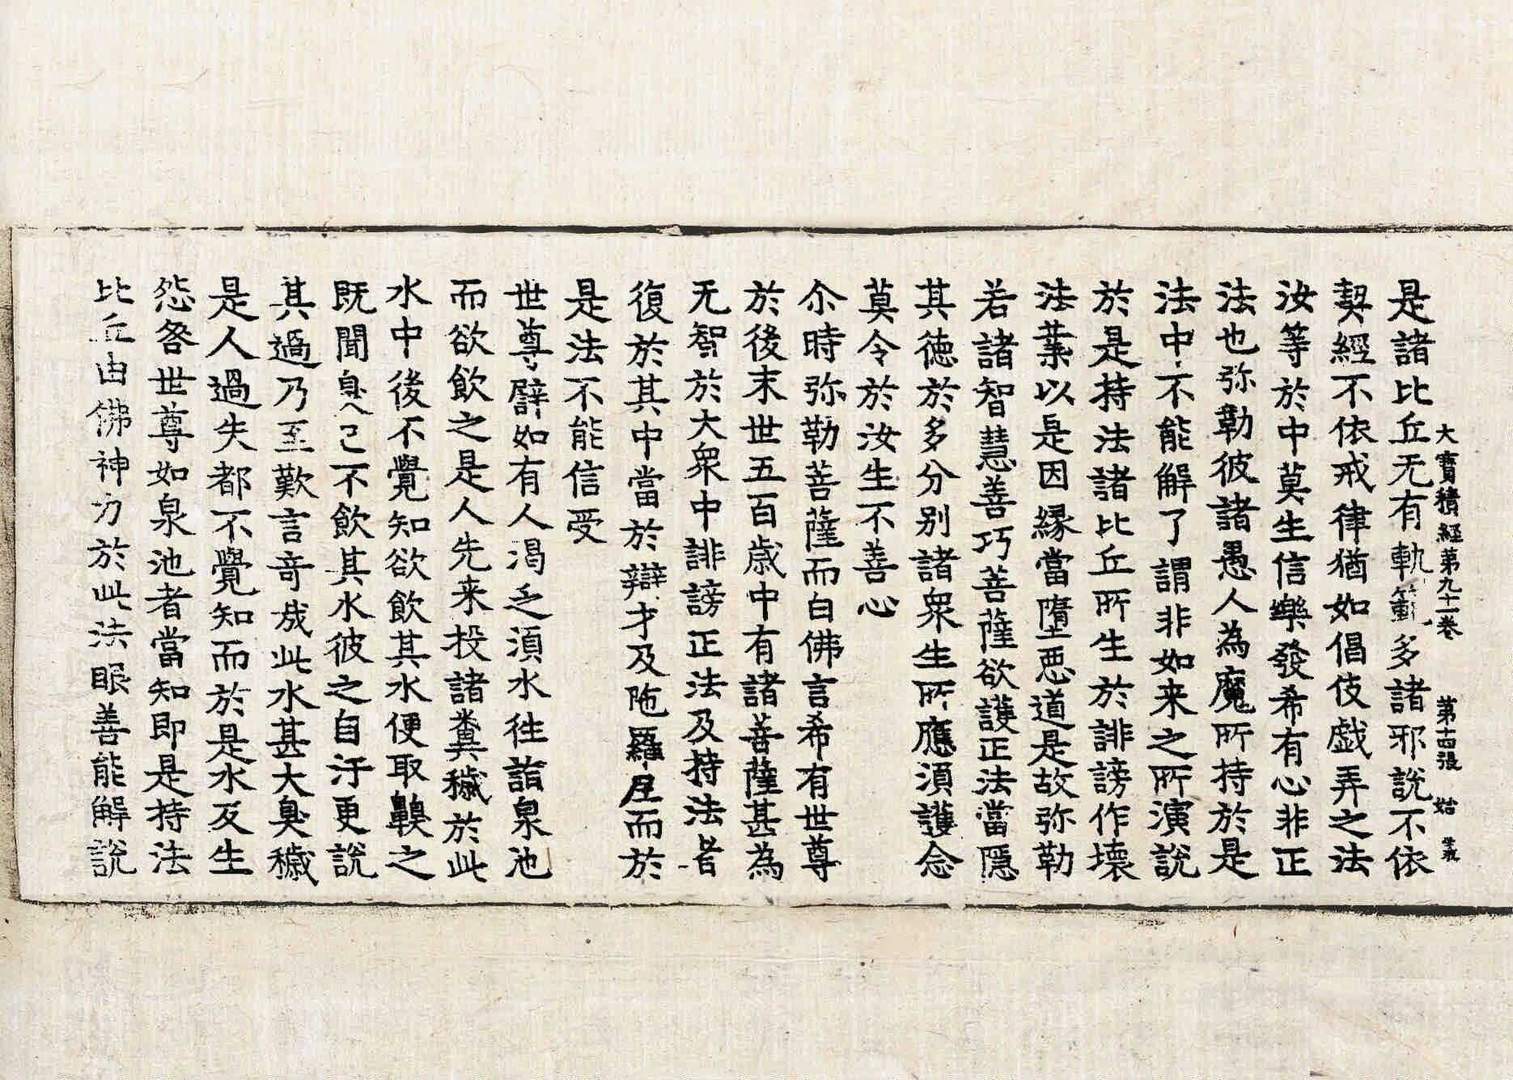 大寶積經第九十一卷　第十四張　始
是諸比丘无有軌範多諸邪說不依
契經不依戒律猶如倡伎戲弄之法
汝等於中莫生信樂發希有心非正
法也弥勒彼諸愚人為魔所持於是
法中不能解了謂非如来之所演說
於是持法諸比丘所生於誹謗作壞
法業以是因緣當墮惡道是故弥勒
若諸智慧善巧菩薩欲護正法當隱
其徳於多分别諸衆生所應湏護念
莫令於汝生不善心
尒時弥勒菩薩而白佛言希有世尊
於後末世五百歳中有諸菩薩甚為
无智於大衆中誹謗正法及持法者
復於其中當於辯才及陁羅尼而於
是法不能信受
世尊譬如有人渴乏湏水往詣泉池
而欲飲之是人先来投諸糞穢於此
水中後不覺知欲飲其水便取齅之
既聞臭已不飲其水彼之自汙更說
其過乃至歎言奇哉此水甚大臭穢
是人過失都不覺知而於是水反生
怨咎世尊如泉池者當知即是持法
比丘由佛神力於此法眼善能解說